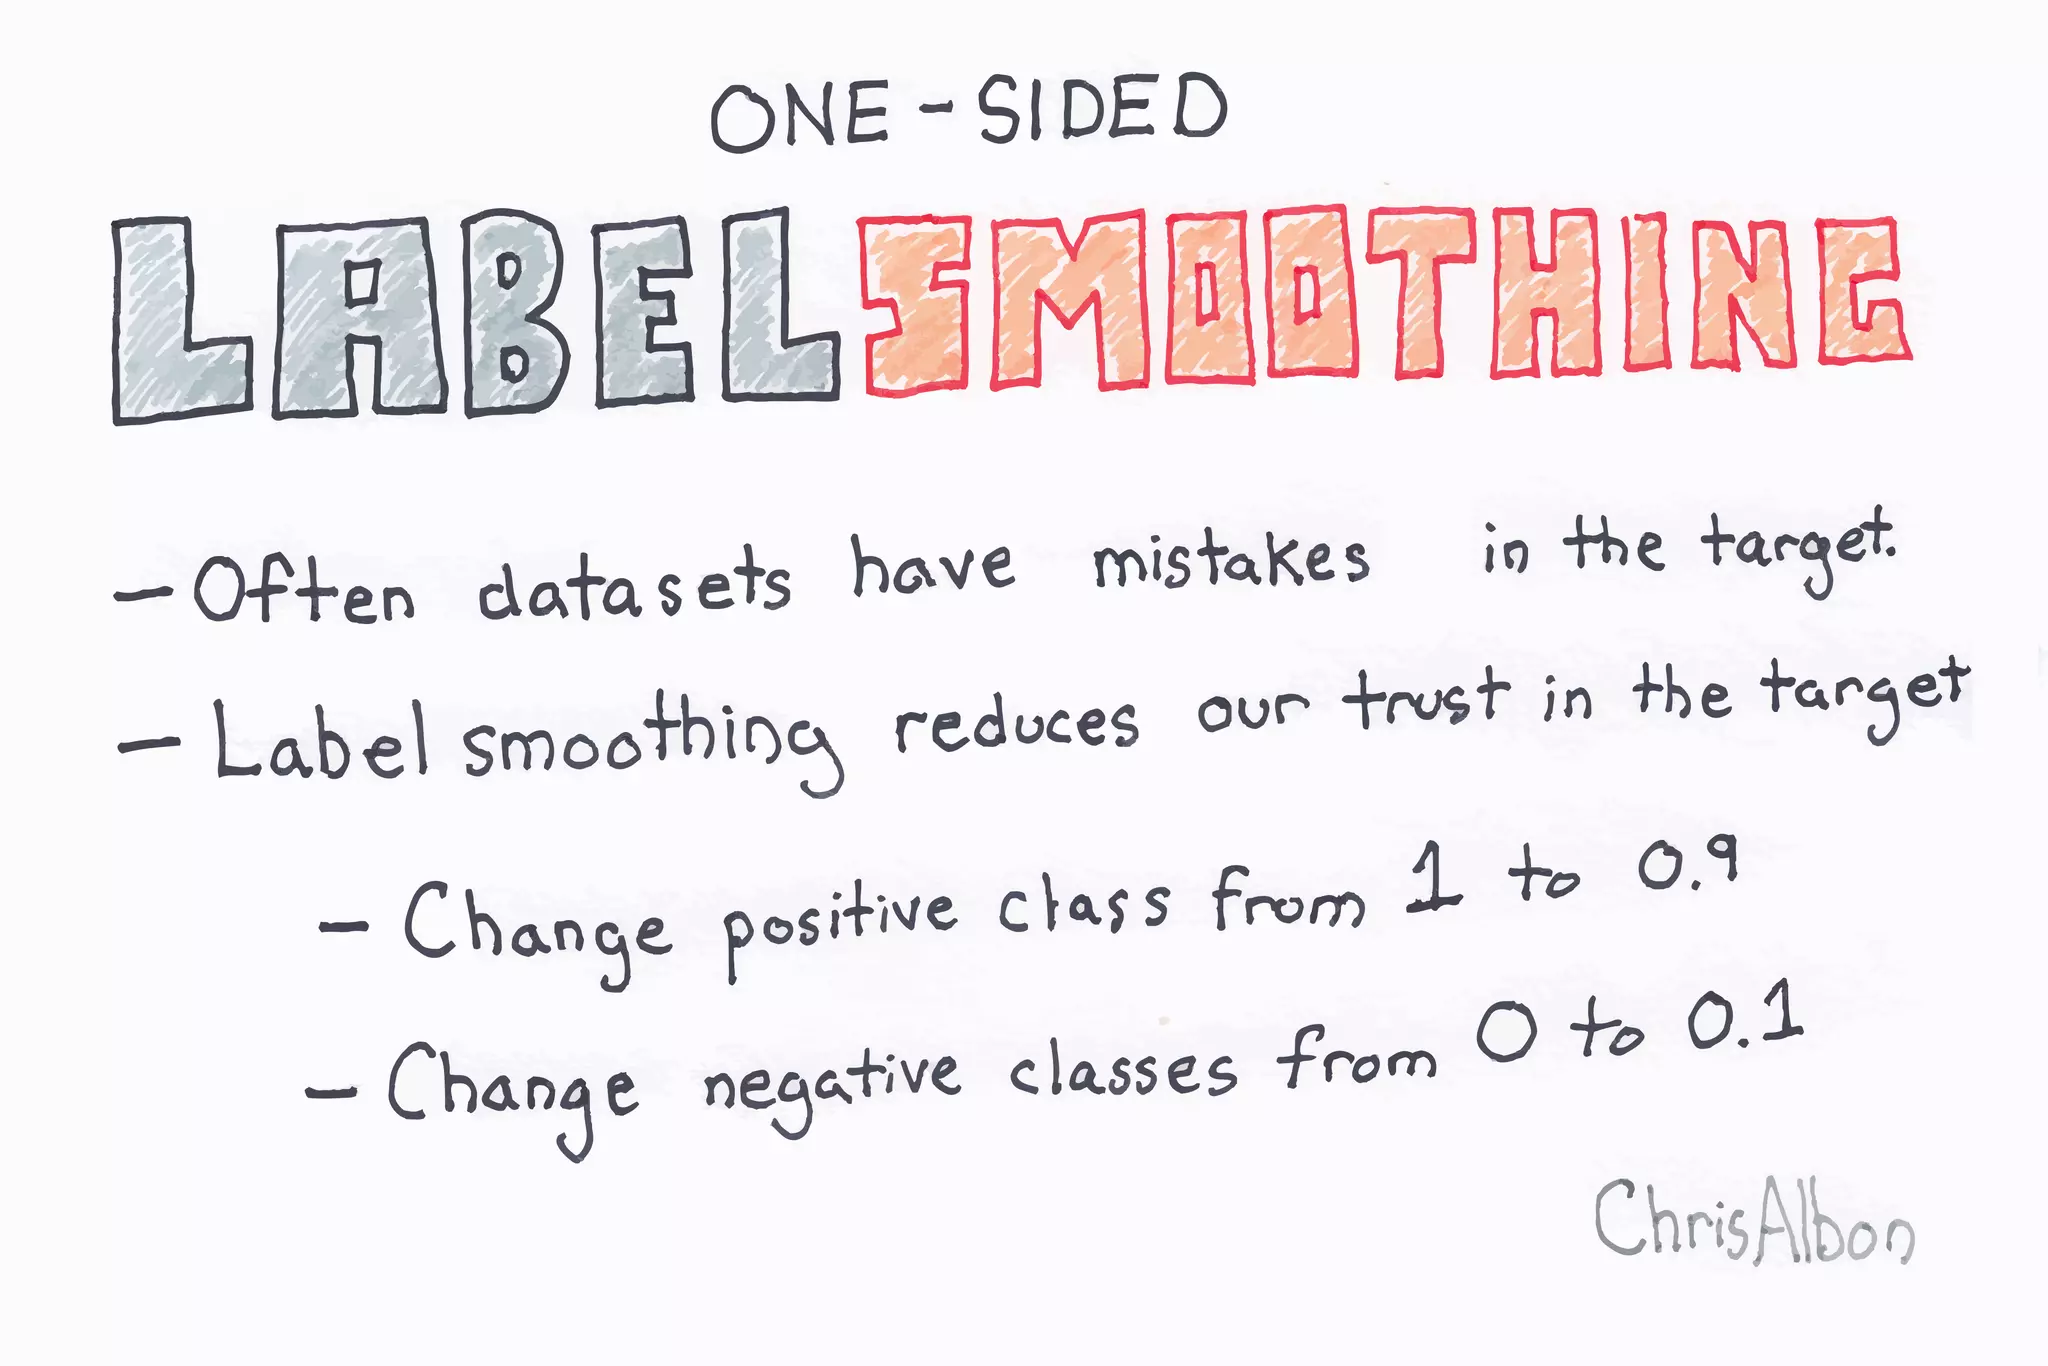 ONE-SIDED
LABEL SMOOTHING
- Often datasets have mistakes in the target.
- Label smoothing reduces our trust in the target
- Change positive class from 1 to 0.9
- Change negative classes from 0 to 0.1
ChrisAlbon